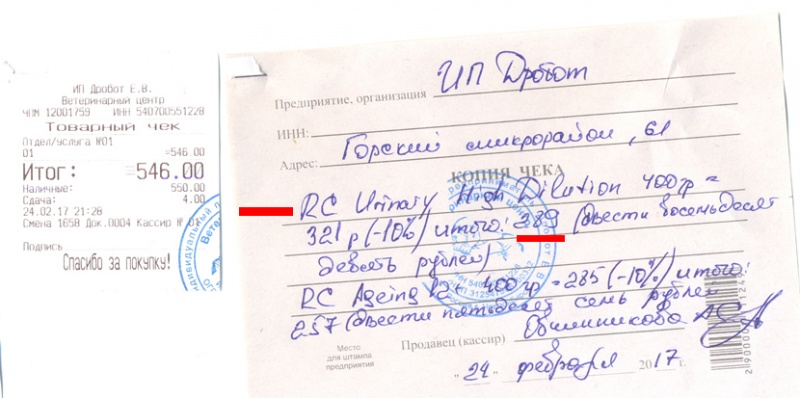 ИП Дробот Е.В.
Ветеринарный центр
ЧПМ 12001759 ИНН 540700551228
Товарный чек
Отдел/услуга №01
01 =546.00
Итог: =546.00
Наличные: 550.00
Сдача: 4.00
24.02.17 21:28
Смена 1658 Док.0004 Кассир №
Подпись
Спасибо за покупку!
Предприятие, организация ИП Дробот
ИНН:
Адрес: Горский микрорайон, 61
КОПИЯ ЧЕКА
RC Urinary High Dilution 400гр =
321 р (-10%) итого: 289 (двести восемьдесят
девять рублей)
RC Ageing 12+ 400гр = 285 (-10%) итого:
257 (двести пятьдесят семь рублей
Продавец (кассир)
Место
для штампа
предприятия
"24" февраля 2017 г.